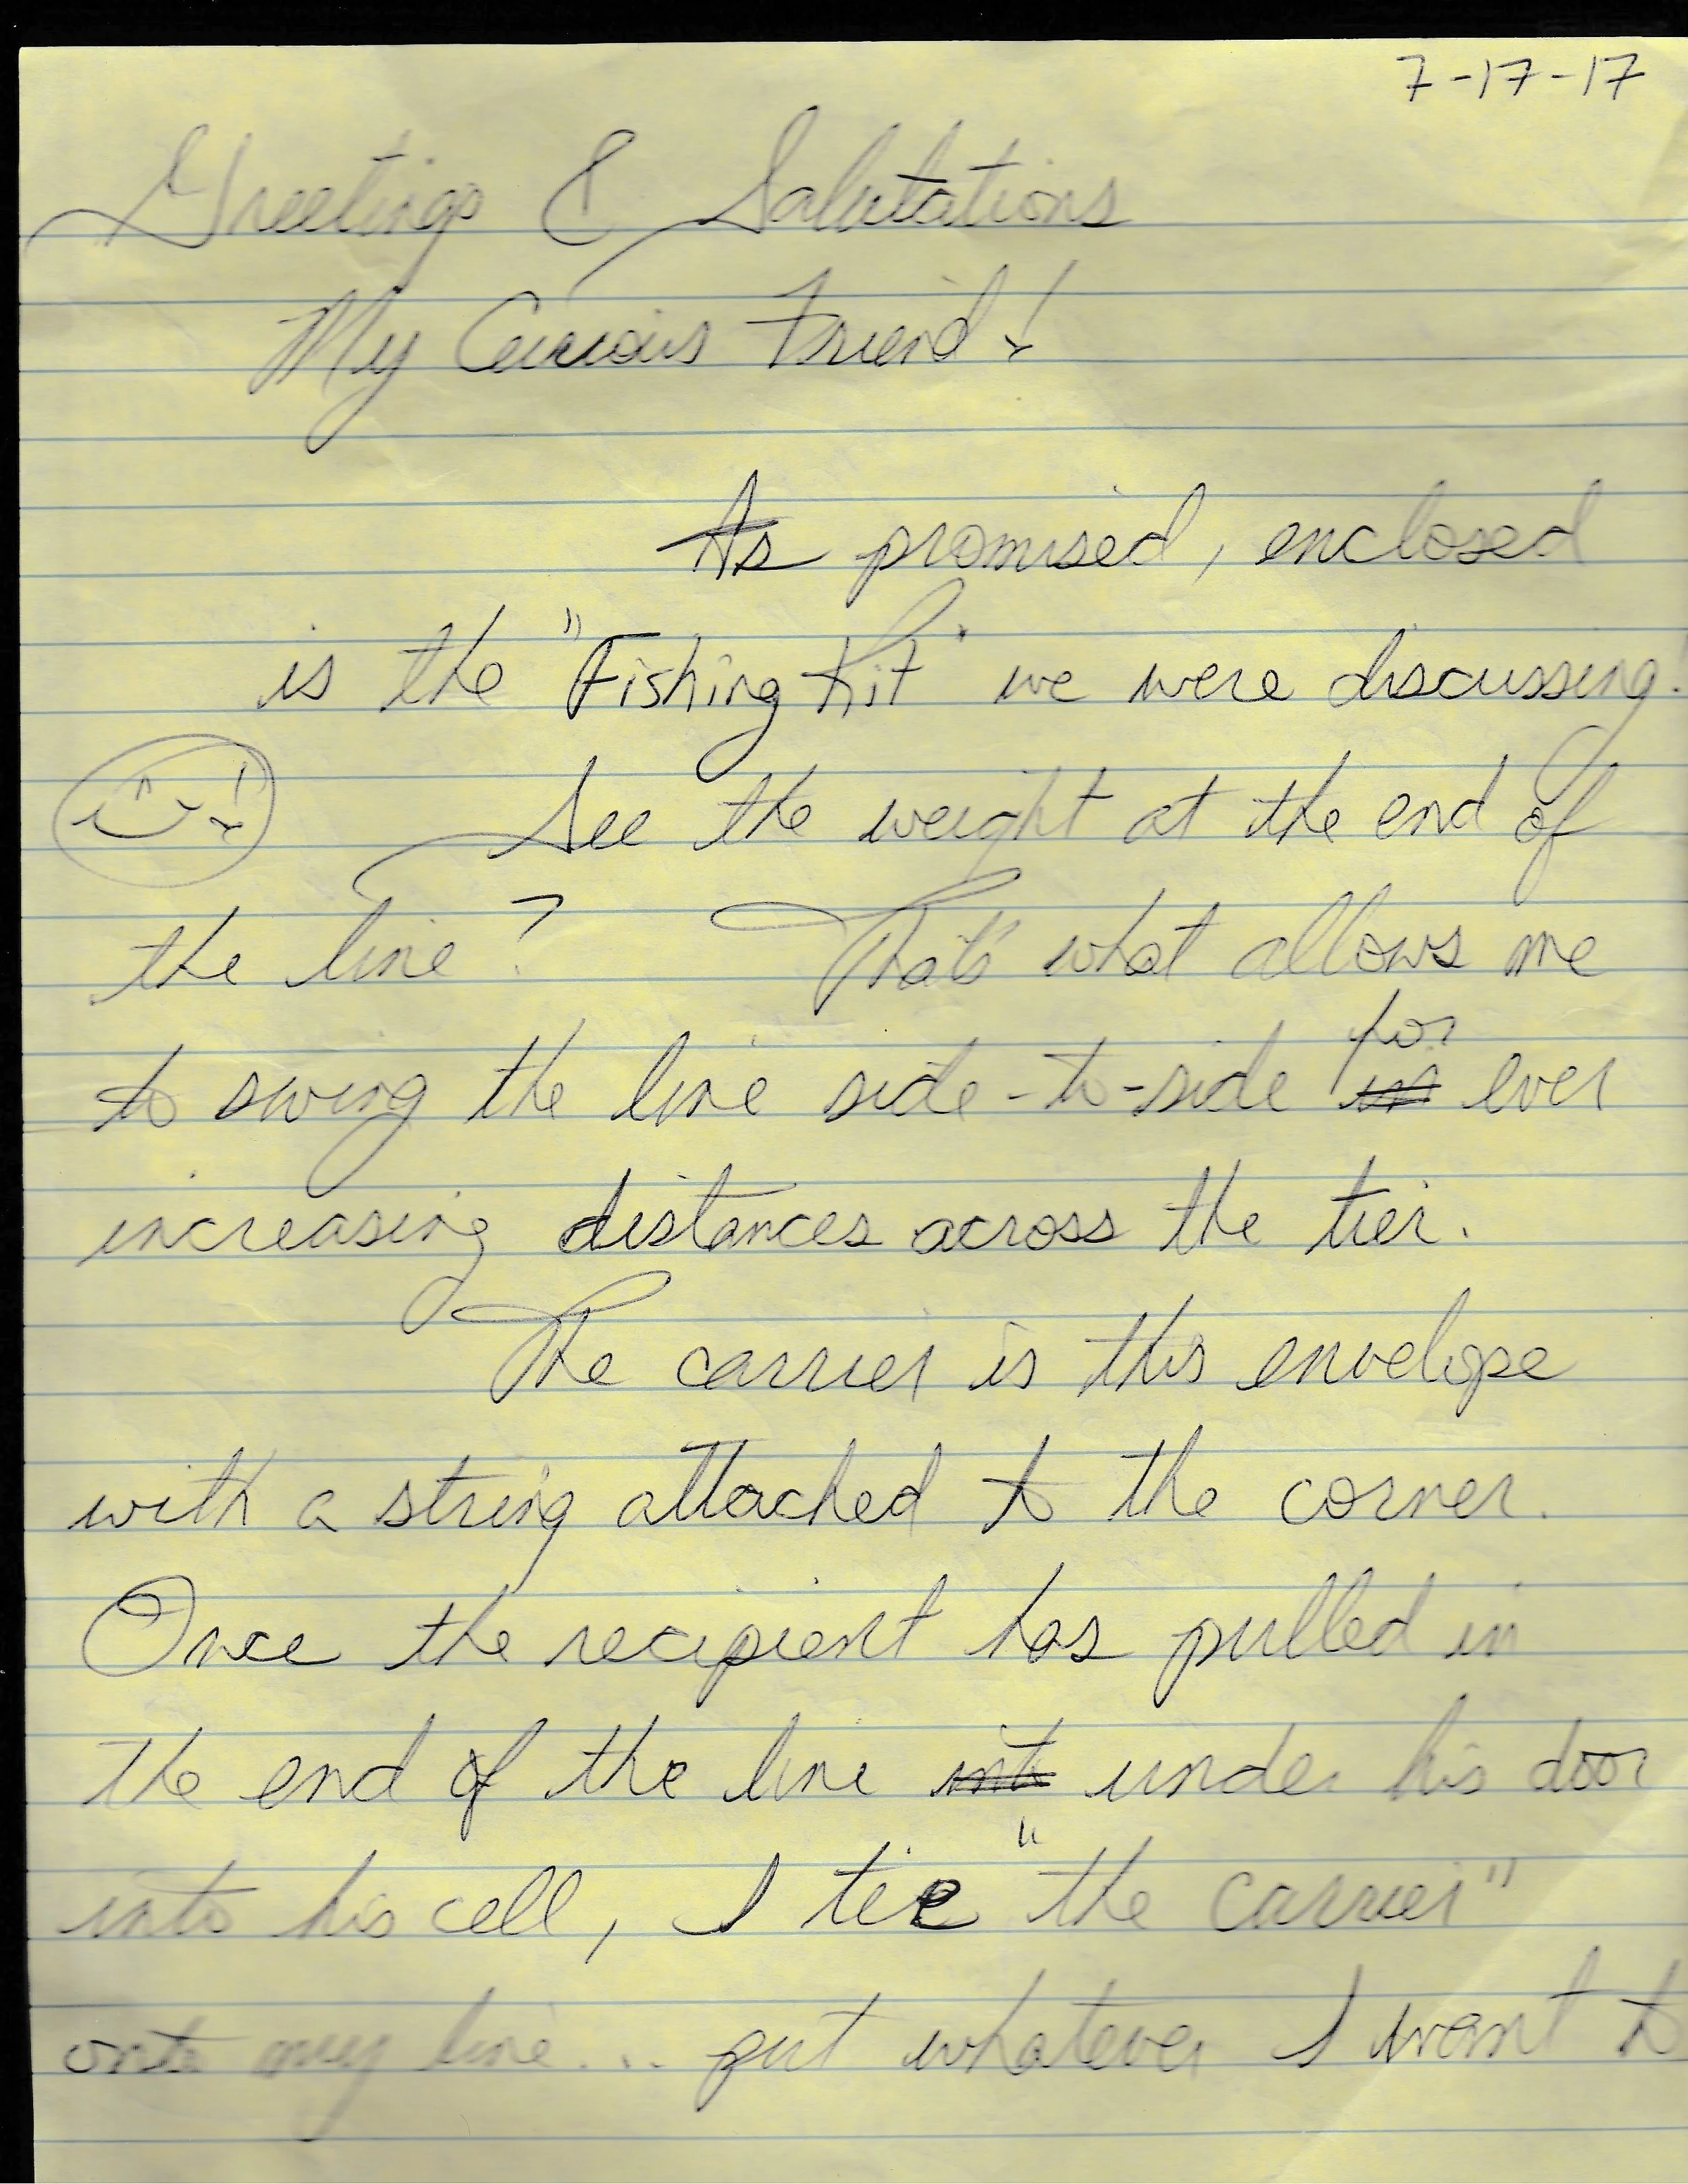 7-17-17
Greetings & Salutations
My Curious Friend!
As promised, enclosed
is the "Fishing Kit" we were discussing!
See the weight at the end of
the line? That's what allows me
to swing the line side-to-side ~~in~~ for ever
increasing distances across the tier.
The carrier is this envelope
with a string attached to the corner.
Once the recipient has pulled in
the end of the line ~~into~~ under his door
into his cell, I tie "the carrier"
onto my line... put whatever I want to